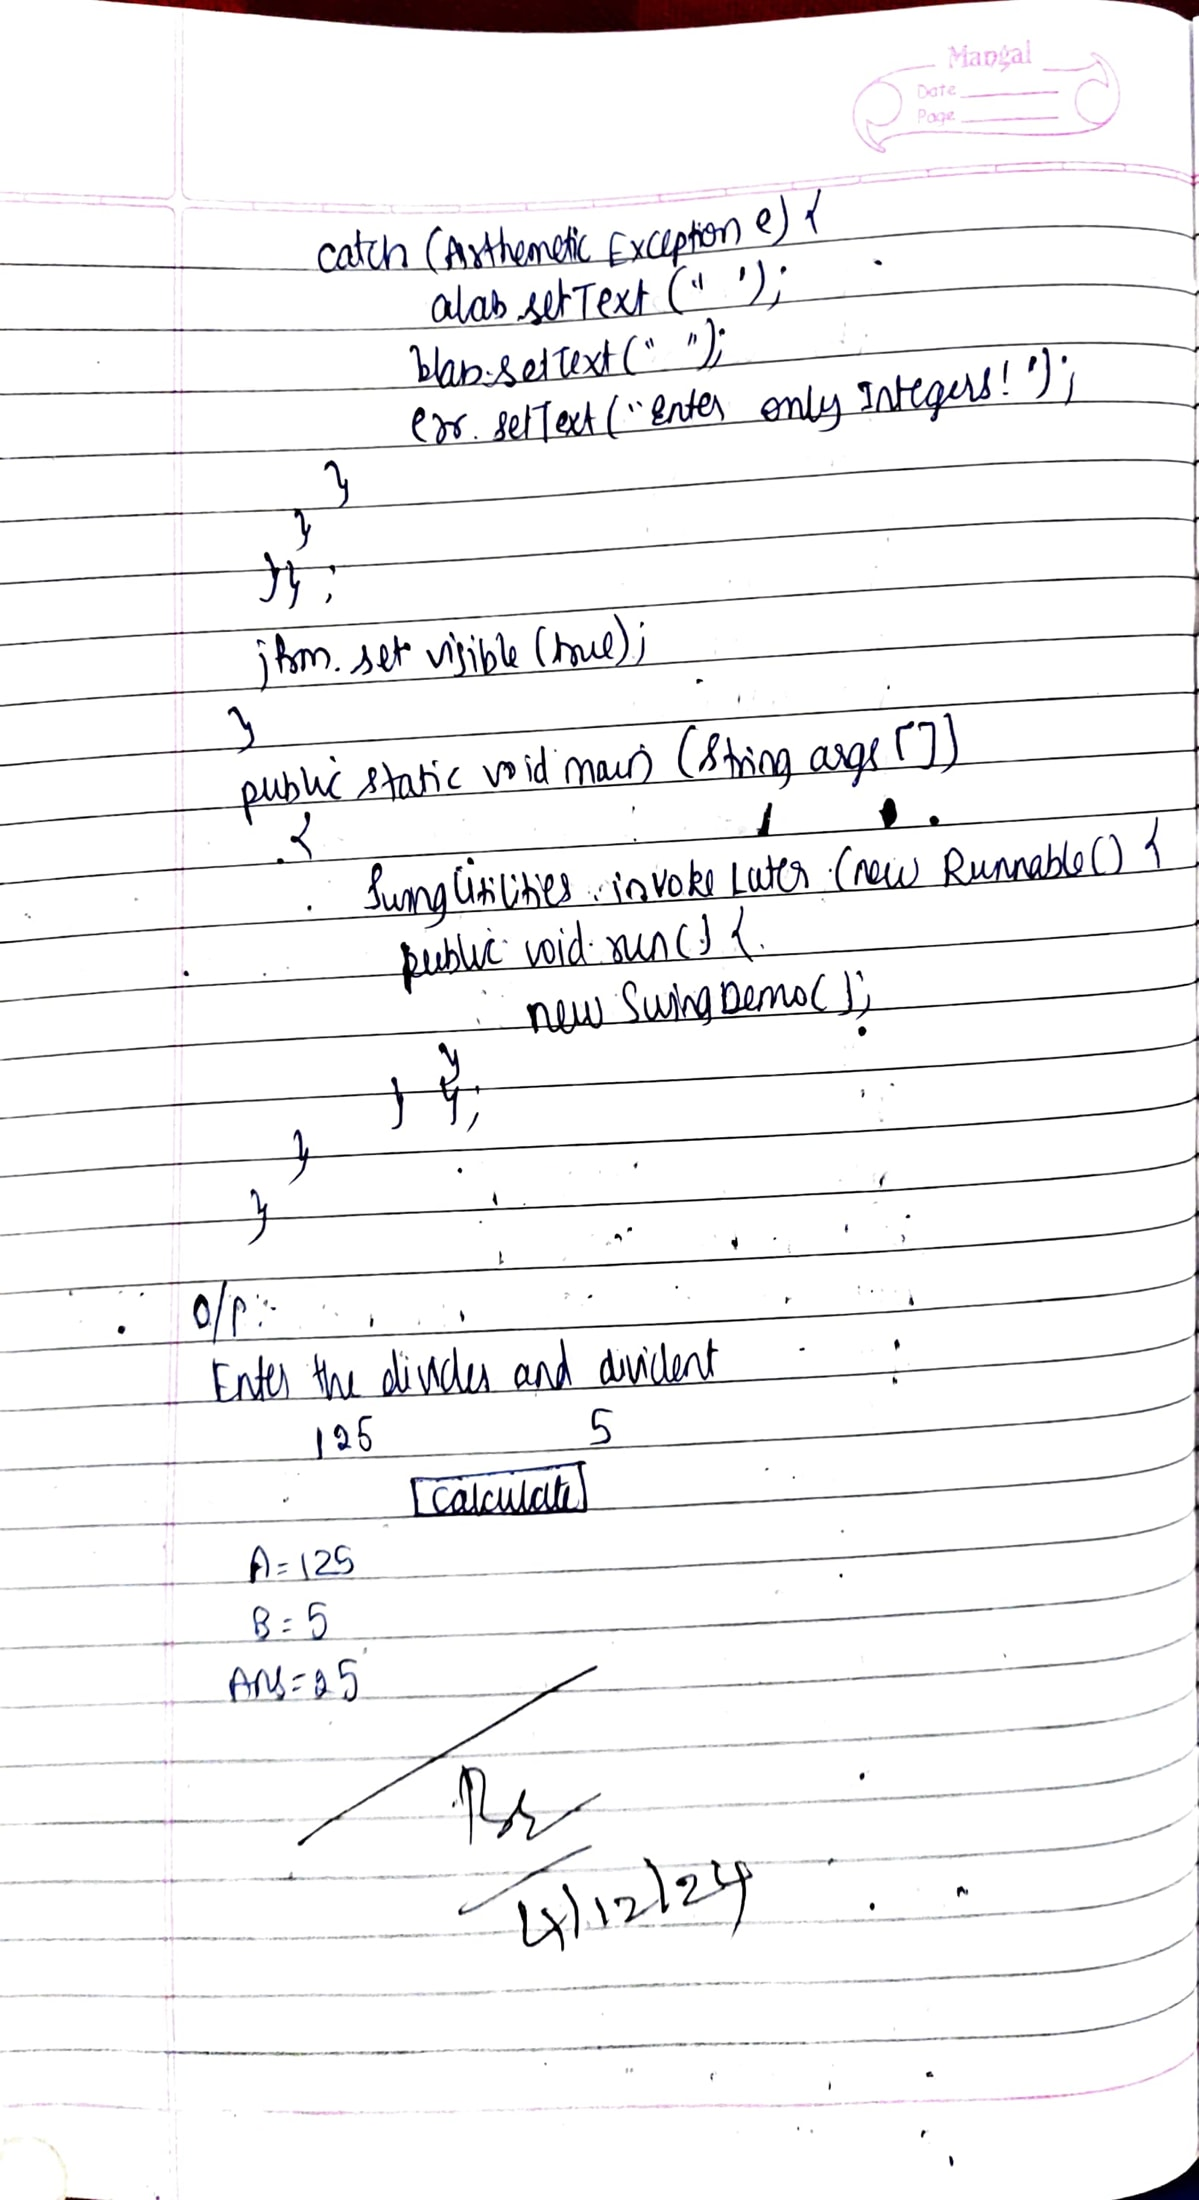 Mangal
Date
Page
catch (Arthemetic Exception e) {
alab.setText (" ");
blab.setText (" ");
err. setText ("Enter only Integers!");
}
}
}};
jfrm. set visible (true);
}
public static void main (String args [])
{
SwingUtilities. invoke Later (new Runnable() {
public void run() {
new SwingDemo();
}
} };
}
}
O/P:
Enter the divider and divident
125 5
[Calculate]
A=125
B=5
Ans=25
4/12/24